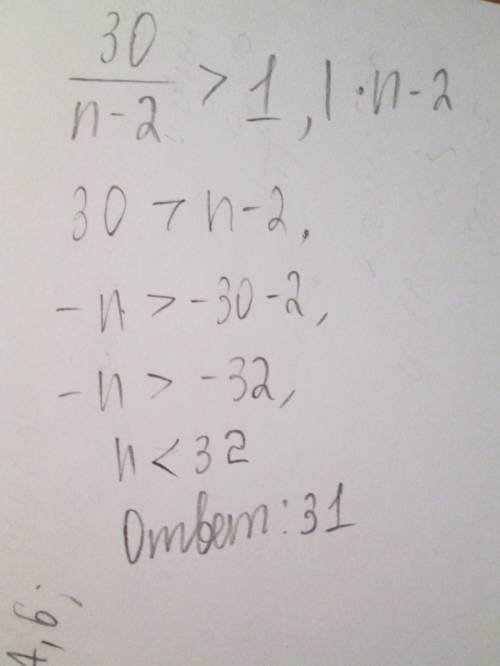 30/(n-2) > 1, | · n-2
30 > n-2,
-n > -30-2,
-n > -32,
n < 32
Ответ: 31